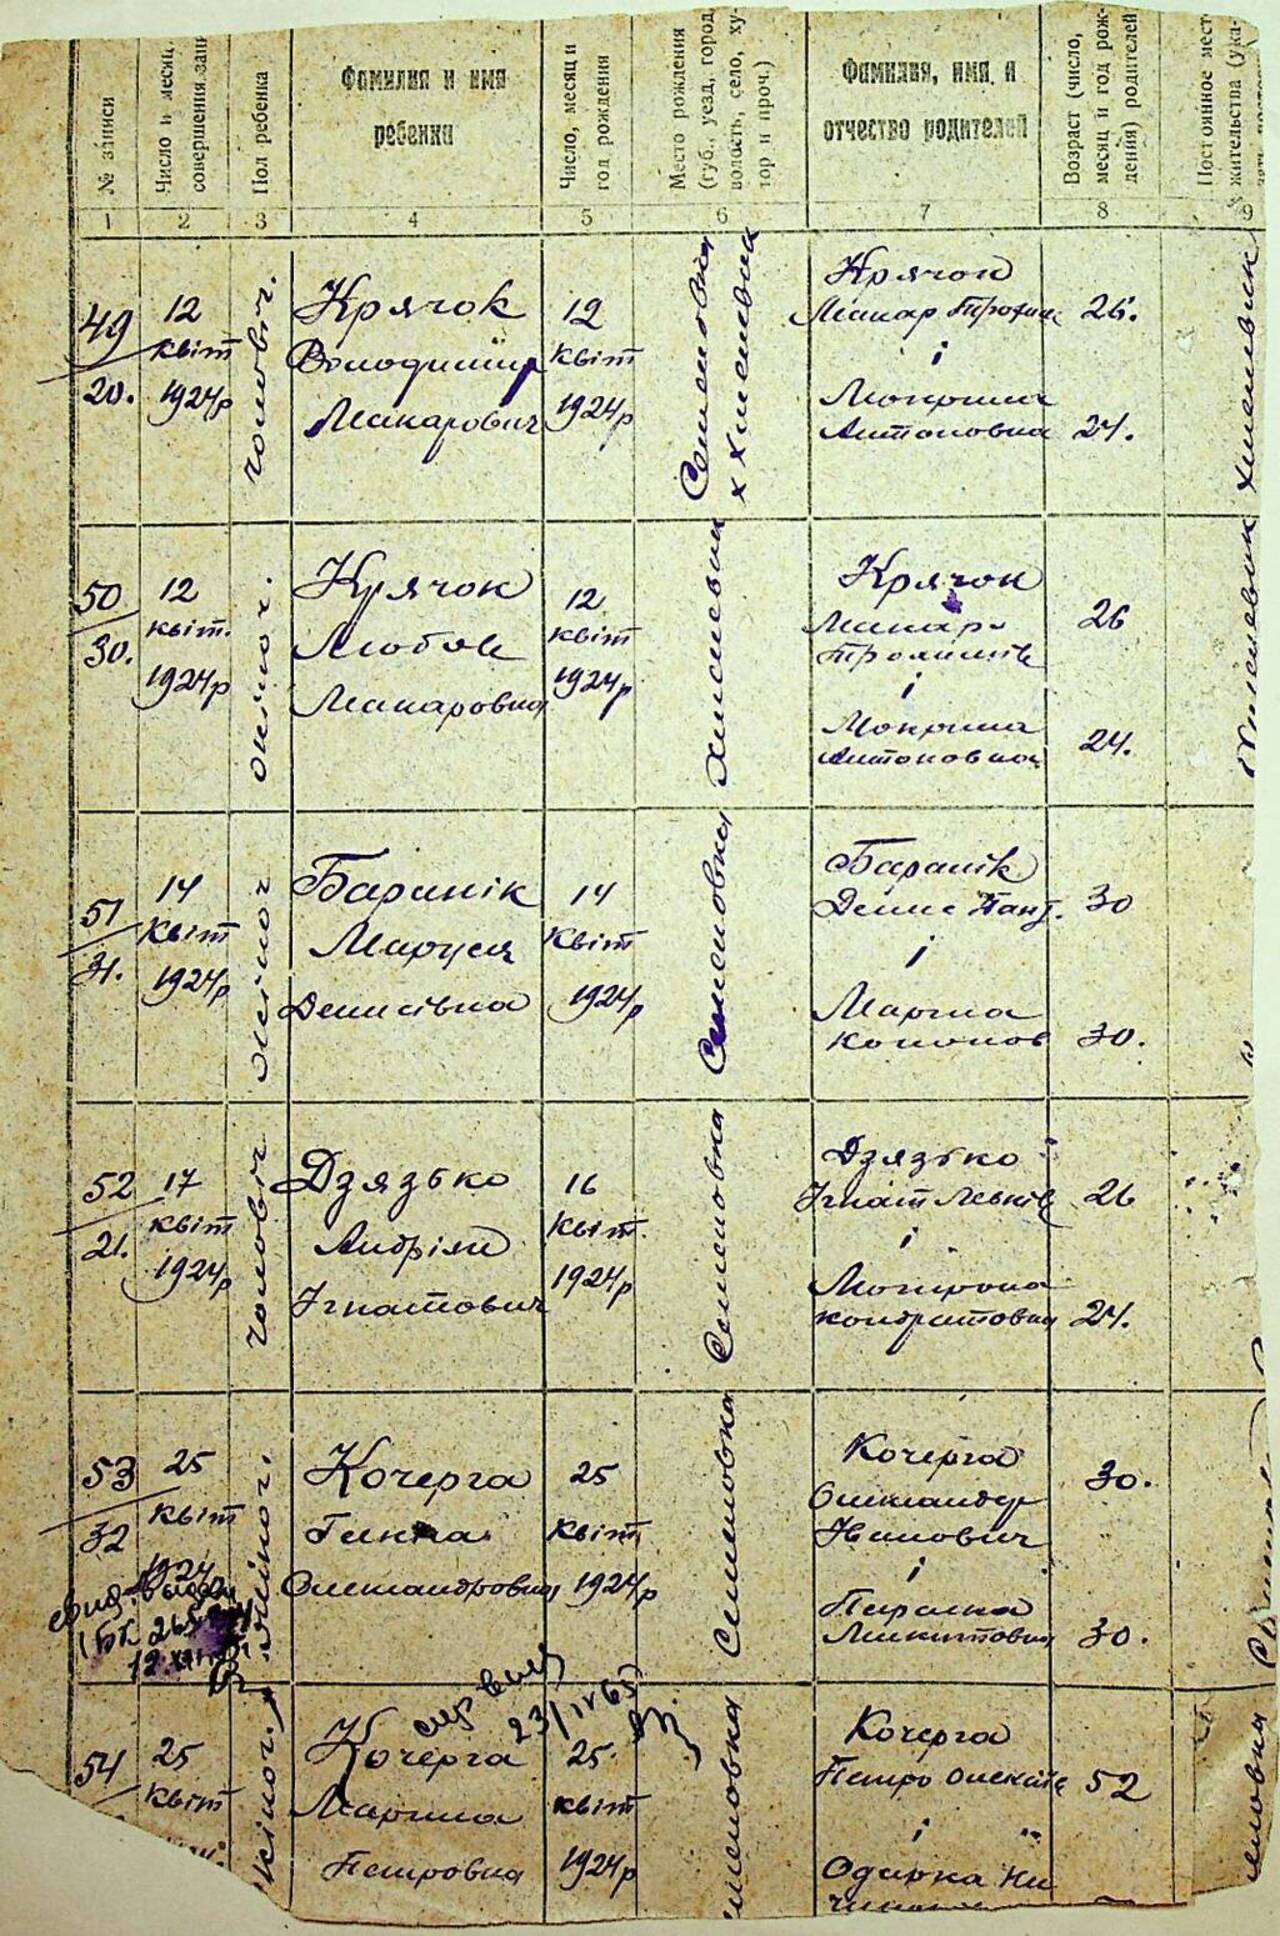 № записи
Число и месяц
совершения запи
Пол ребенка
Фамилия и имя
ребенка
Число, месяц и
год рождения
Место рождения
(губ., уезд, город,
волость, село, ху-
тор и проч.)
Фамилия, имя и
отчество родителей
Возраст (число,
месяц и год рож-
дения) родителей
Постоянное мест
жительства (ука-
1 2 3 4 5 6 7 8 9
49
20.
12
квіт
1924р
чоловіч.
Крячок
Володимир
Макарович
12
квіт
1924р
Семеновка
х Хмелевик
Крячок
Макар Трохим
і
Мокрина
Антоновна
26.
24.
Хмелевик
50
30.
12
квіт.
1924р
жіноч.
Крячок
Любов
Макаровна
12
квіт
1924р
Хмелевик
Крячок
Макар
і
Мокрина
Антоновна
26
24.
Хмелевик
51
31.
14
квіт
1924р
жіноч
Баранік
Маруся
Денисівна
14
квіт
1924р
Семеновка
Баранік
Денис Пант.
і
Марина
Кононов
30
30.
52
21.
17
квіт
1924р
чоловіч
Дзязько
Андріян
Ігнатович
16
квіт.
1924р
Семеновка
Дзязько
Ігнат Левків
і
Мотрона
Кондратовна
26
24.
53
32
25
квіт
1924
жіноч.
Кочерга
Ганна
Олександровна
25
квіт
1924р
Семеновка
Кочерга
Олександр
Іванович
і
Параска
Микитовна
30.
30.
12.XII
23/IV 65
54
25
квіт
жіноч.
Кочерга
Марина
Петровна
25.
квіт
1924р
меновка
Кочерга
Петро Олекс
і
Одарка Ни
52
меновка